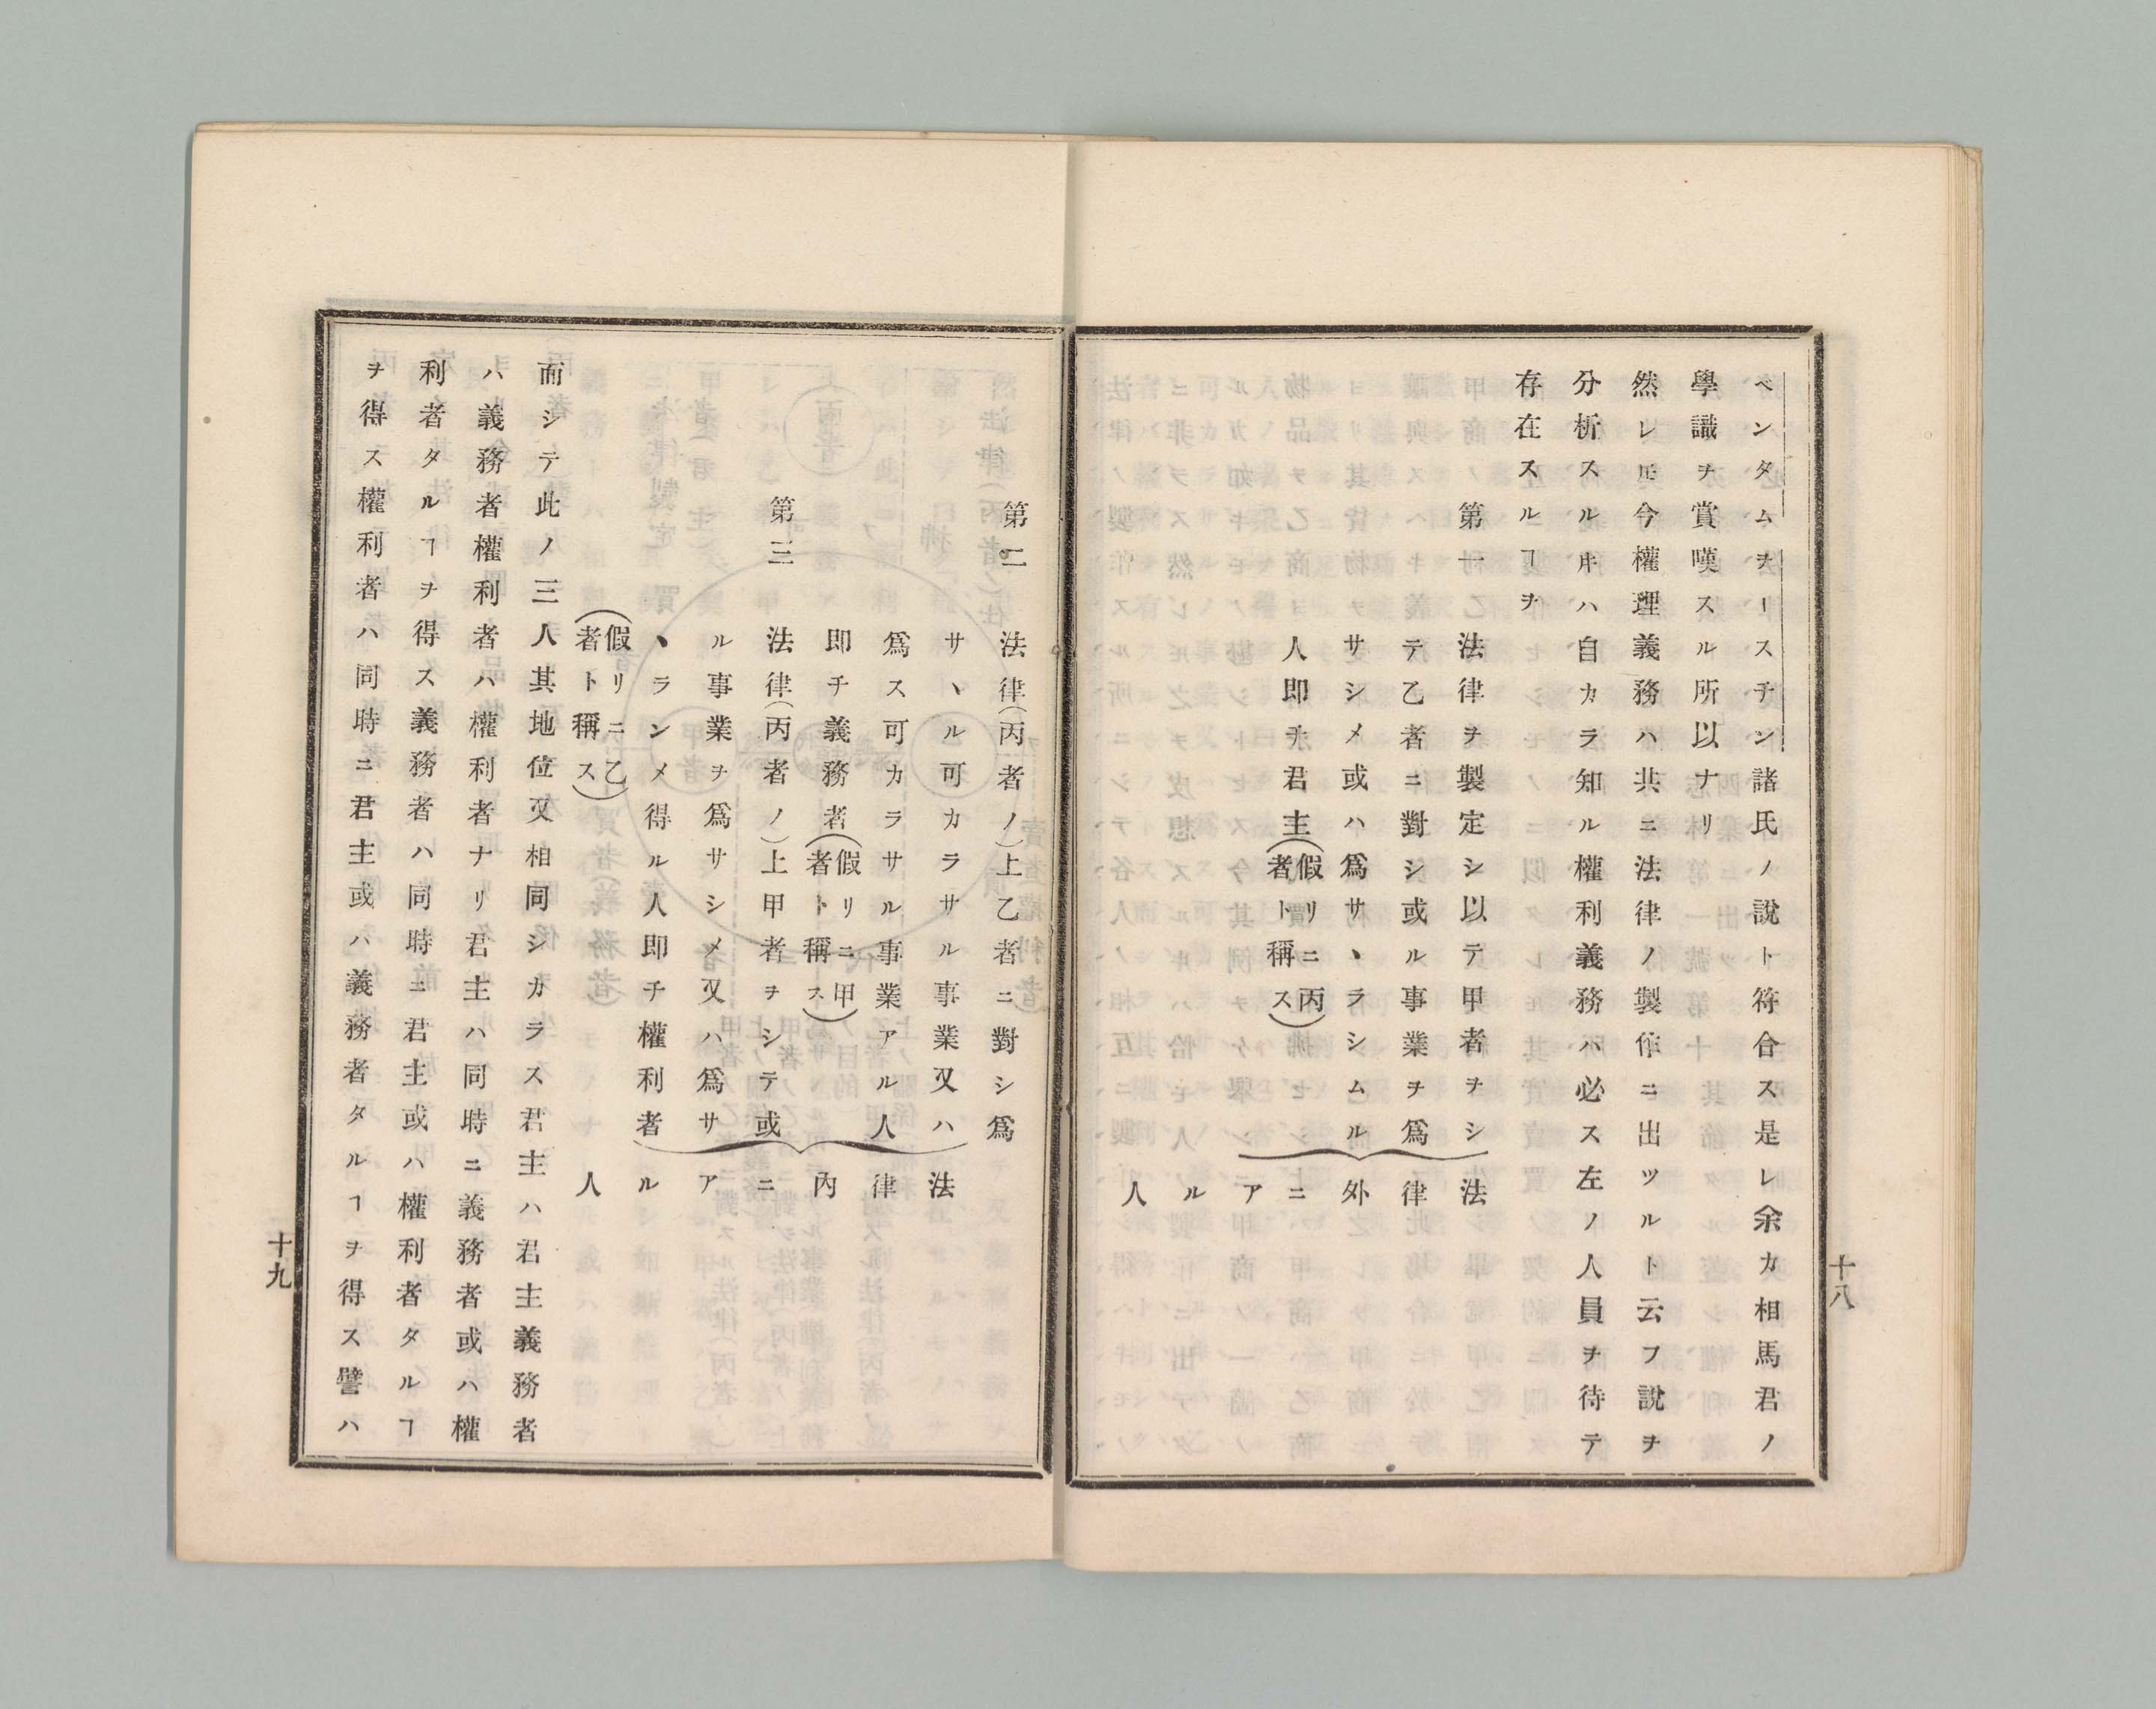 十八
ベンタムヲースチン諸氏ノ說ト符合ス是レ余カ相馬君ノ
學識ヲ賞嘆スル所以ナリ
然レ𪜈今權理義務ハ共ニ法律ノ製作ニ出ツルト云フ說ヲ
分析スル𪜀ハ自カラ知ル權利義務ハ必ス左ノ人員ヲ待テ
存在スルヿヲ
第一 法律ヲ製定シ以テ甲者ヲシ
テ乙者ニ對シ或ル事業ヲ爲
サシメ或ハ爲サヽラシムル
人即チ君主(假リニ丙者ト稱ス)
法律外ニアル人
第二 法律(丙者ノ)上乙者ニ對シ爲
サヽル可カラサル事業又ハ
爲ス可カラサル事業アル人
即チ義務者(假リニ甲者ト稱ス)
第三 法律(丙者ノ)上甲者ヲシテ或
ル事業ヲ爲サシメ又ハ爲サ
ヽランメ得ル人即チ權利者
(假リニ乙者ト稱ス)
法律內ニアル人
而シテ此ノ三人其地位又相同シカラス君主ハ君主義務者
ハ義務者權利者ハ權利者ナリ君主ハ同時ニ義務者或ハ權
利者タルヿヲ得ス義務者ハ同時ニ君主或ハ權利者タルヿ
ヲ得ス權利者ハ同時ニ君主或ハ義務者タルヿヲ得ス譬ハ
十九